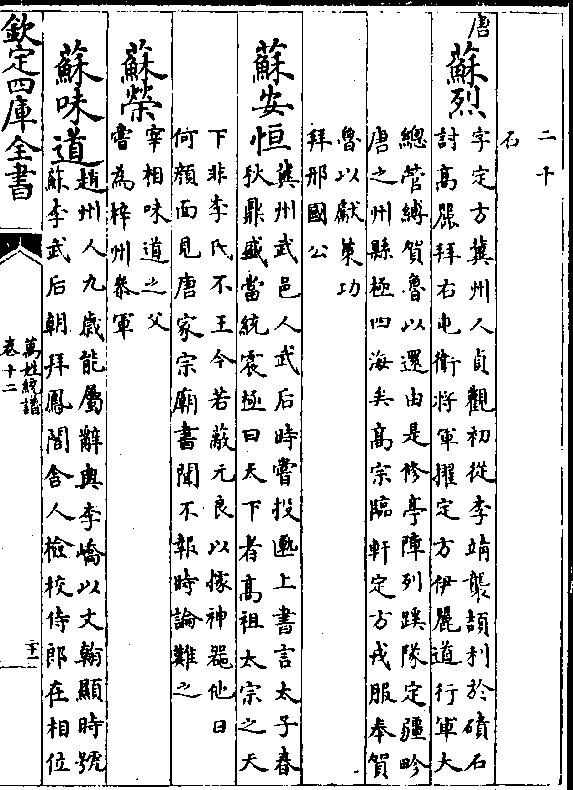 二十
石
唐
蘇烈
字定方冀州人貞觀初從李靖襲頡利於磧石
討高麗拜右屯衛將軍擢定方伊麗道行軍大
總管縛賀魯以還由是修亭障列蹊隧定疆畛
唐之州縣極四海矣高宗臨軒定方戎服奉賀
魯以獻策功
拜邢國公
蘇安恒
冀州武邑人武后時嘗投匭上書言太子春
秋鼎盛當統宸極曰天下者高祖太宗之天
下非李氏不王今若蔽元良以據神器他日
何顏面見唐家宗廟書聞不報時論難之
蘇榮
宰相味道之父
嘗為梓州叅軍
蘇味道
趙州人九歲能屬辭與李嶠以文翰顯時號
蘇李武后朝拜鳳閣舍人檢校侍郎在相位
欽定四庫全書
萬姓統譜
卷十二
二十一